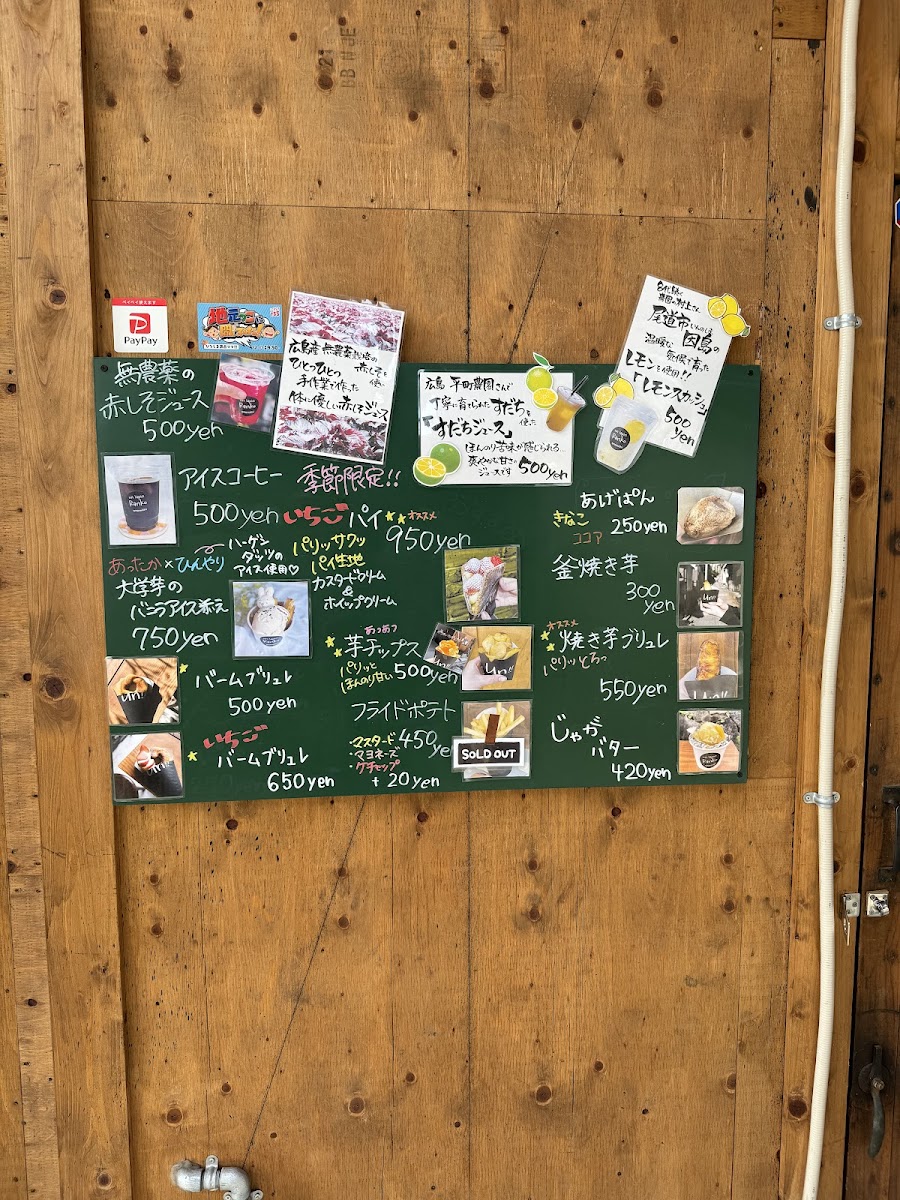 ペイペイ使えます
PayPay
無農薬の
赤しそジュース
500yen
広島産 無農薬栽培の
赤しそを使い
ひとつひとつ
手作業で作った
体に優しい赤しそジュース
広島 平町農園さんで
丁寧に育てられたすだちを使った
「すだちジュース」
ほんのり苦味が感じられる…
爽やかな甘さの
ジュースです 500yen
尾道市 因島の
温暖な気候で育った
レモンを使用!!
「レモンスカッシュ」
500yen
アイスコーヒー
500yen
あったか×ひんやり
ハーゲン
ダッツの
アイス使用♡
大学芋の
バニラアイス添え
750yen
バームブリュレ
500yen
いちご
バームブリュレ
650yen
季節限定!!
いちごパイ
オススメ
950yen
パリッサクッ
パイ生地
カスタードクリーム
&
ホイップクリーム
あつあつ
芋チップス
パリッと
ほんのり甘い
500yen
フライドポテト
450ye
・マスタード
・マヨネーズ
・ケチャップ
+20yen
SOLD OUT
あげぱん
きなこ
ココア
250yen
釜焼き芋
300
yen
オススメ
焼き芋ブリュレ
パリッとろっ
550yen
じゃが
バター
420yen